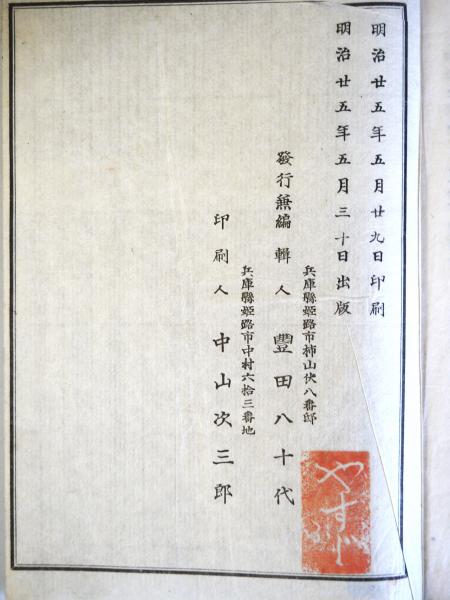 明治廿五年五月廿九日印刷
明治廿五年五月三十日出版
兵庫縣姫路市柿山伏八番邸
發行兼編輯人 豐田八十代
兵庫縣姫路市中村六拾三番地
印刷人 中山次三郎